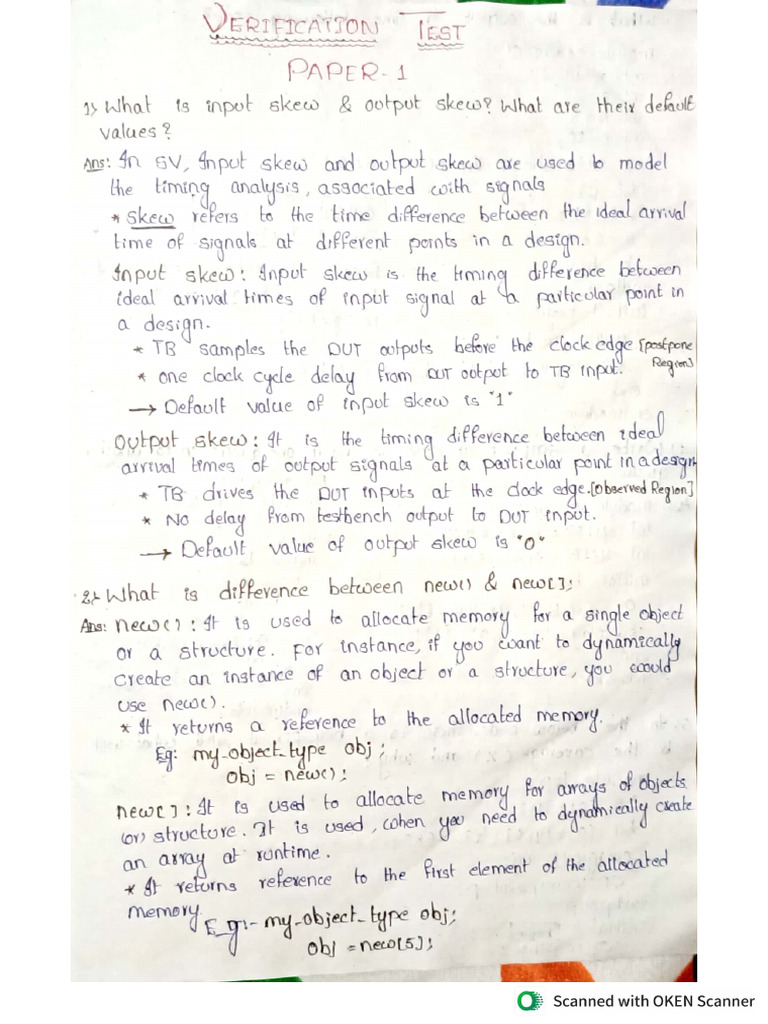 VERIFICATION TEST
PAPER-1
1> What is input skew & output skew? What are their default
values?
Ans: In SV, Input skew and output skew are used to model
the timing analysis, associated with signals
* Skew refers to the time difference between the ideal arrival
time of signals at different points in a design.
Input skew: Input skew is the timing difference between
ideal arrival times of input signal at a particular point in
a design.
* TB samples the DUT outputs before the clock edge [postpone
Region]
* one clock cycle delay from DUT output to TB input.
→ Default value of input skew is "1"
Output skew: It is the timing difference between ideal
arrival times of output signals at a particular point in a design
* TB drives the DUT inputs at the clock edge.[Observed Region]
* No delay from testbench output to DUT input.
→ Default value of output skew is "0"
2> What is difference between new() & new[];
Ans: new(): It is used to allocate memory for a single object
or a structure. For instance, if you want to dynamically
create an instance of an object or a structure, you would
use new().
* It returns a reference to the allocated memory.
Eg: my_object_type obj;
obj = new();
new[]: It is used to allocate memory for arrays of objects
(or) structure. It is used, when you need to dynamically create
an array at runtime.
* It returns reference to the first element of the allocated
memory.
E_g:- my_object_type obj;
obj = new[5];
Scanned with OKEN Scanner